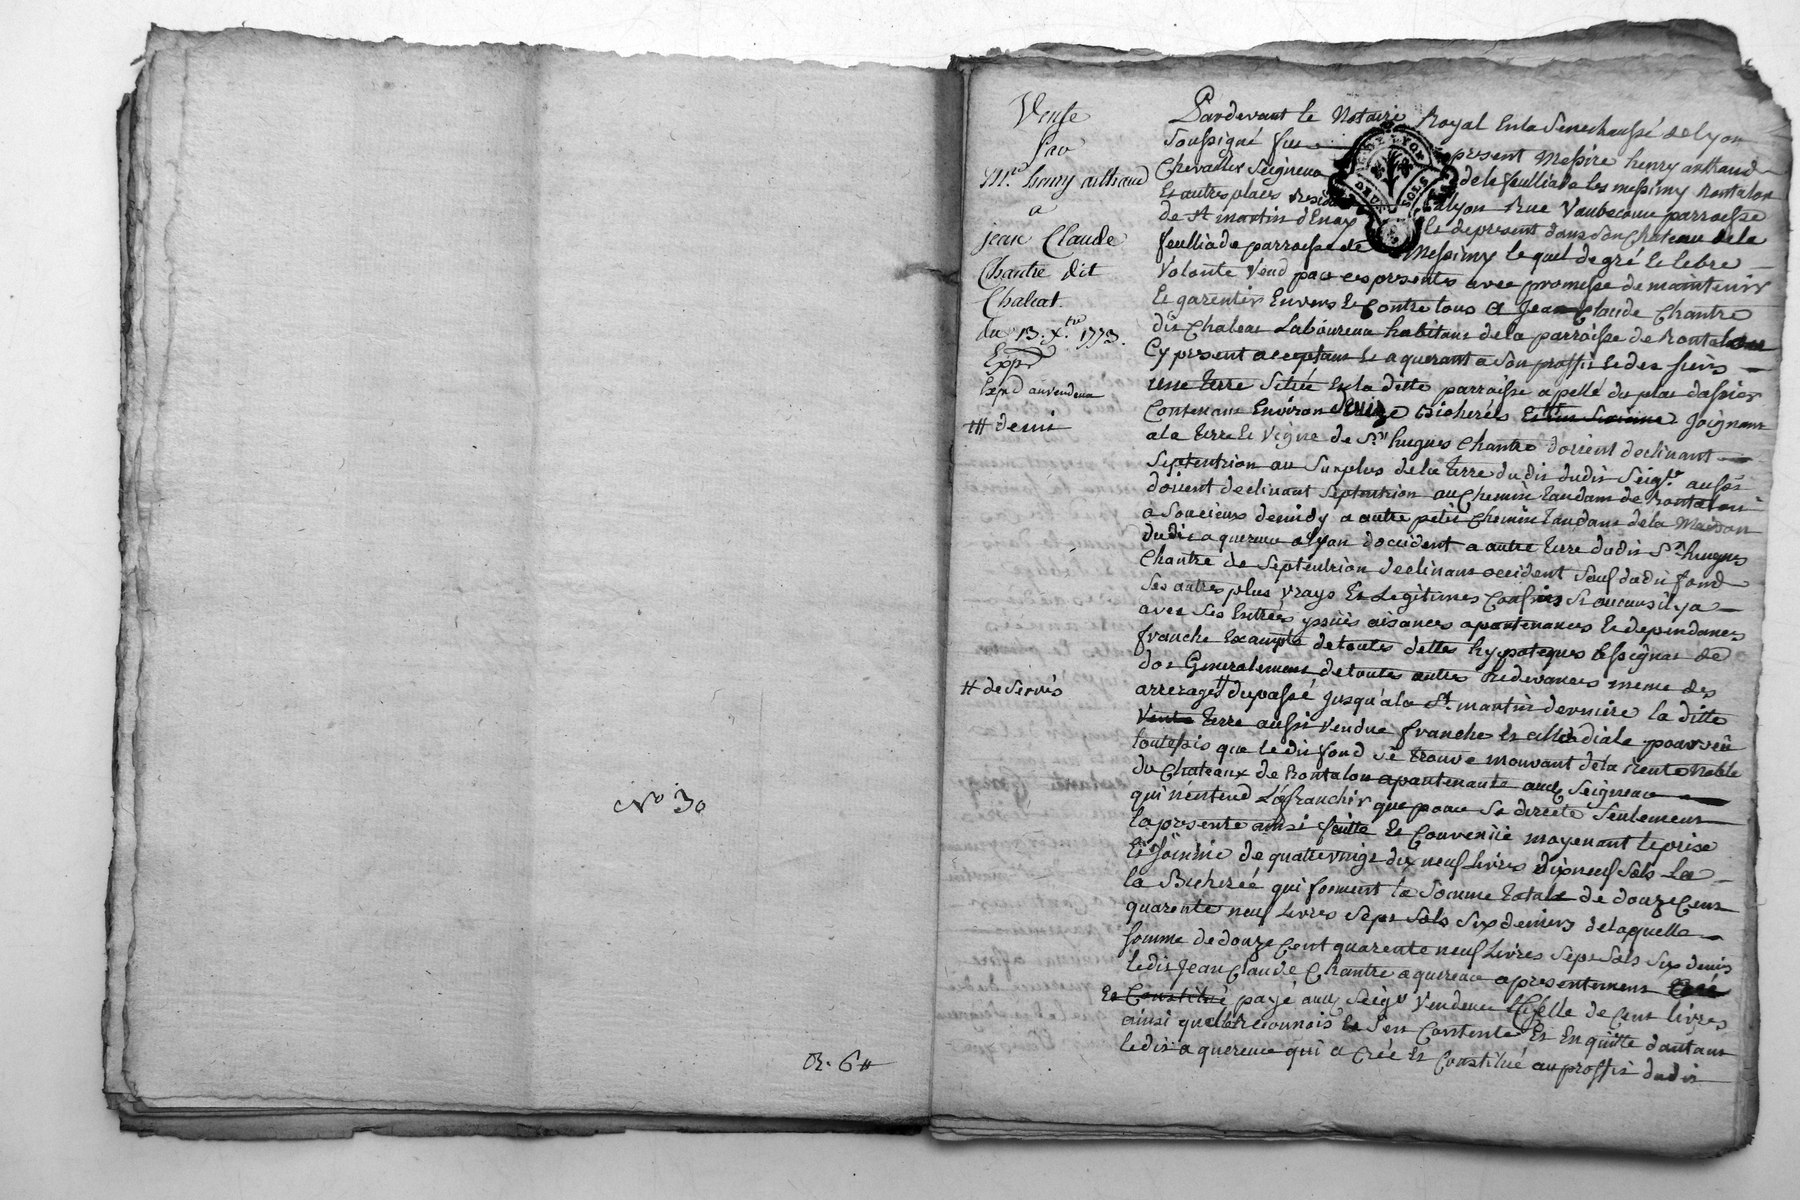 No 30
R. 6 #
Vense
par
Mre henry arthaud
a
jean Claude
Chantre dit
Chaleat.
du 13. Xbre 1773.
Expd
Expd au vendeur
### demi
# de Servis
GEN. DE LYON
DEUX SOLS
Pardevant le Notaire Royal En la Senechaussé de lyon
Soussigné fut present Messire henry arthaud
Chevallier Seigneur de la feulliade les messimy Rontalon
Et autres places Resid a lyon Rue Vaubecour parroisse
de St martin d'Enay Et depresent dans son Chateau de la
feulliade parroisse de Messimy le quel de gré Et libre
Volonté Vend par ces presentes avec promesse de maintenir
Et garentir Envers Et Contre tous a Jean Claude Chantre
dit Chaleat Laboureur habitant de la parroisse de Rontalon
Cy present acceptant Et aquerant a son proffit Et des siens
une terre Située En la ditte parroisse apellé du plat dasnier
Contenant Environ Bicherées Joignant
a la terre Et Vigne de Sr hugues Chantre dorient declinant
Septentrion au Surplus de la terre dudit dudit Seigr aussi
dorient declinant Septentrion au Chemin tandant de Rontalon
a Soucieux demidy a autre petit Chemin tandant de la Maison
dudit aquereur a lyon doccident a autre terre dudit Sr hugues
Chantre de Septentrion declinant occident Sauf dudit fond
Ses autres plus Vrays Et Legitimes Confins Si aucuns il y a
avec Ses Entrées yssües aisances apartenances Et dependances
franche Exempte de toutes dettes hypoteques Et
dot Generalement de toute autres Redevances meme des
arrerages # du passé jusqu'a la St. martin derniere la ditte
Vente terre aussi Vendue franche Et allodiale pourveu
toutefois que ledit fond Se trouve mouvant de la Rente Noble
du Chateaux de Rontalon apartenante audt Seigneur
qui nentend L'afranchir que pour Sa directe Seulement
la presente ainsi faitte Et Convenüe moyenant le prise
Et Somme de quatre vingt dix neuf Livres dixneuf Sols La
la Bicherée qui forment la Somme totale de douze Cent
quarente neuf Livres Sept Sols Six deniers de laquelle
Somme de douze Cent quarente neuf Livres Sept Sols Six deniers
ledit Jean Claude Chantre aquereur a presentement Créé
Et Constitué payé audt Seigr Vendeur Celle de Cent livres
ainsi quil le reconnois Et S'en Contente Et En quitte dautant
ledit aquereur qui a Créé Et Constitué au proffit dudit